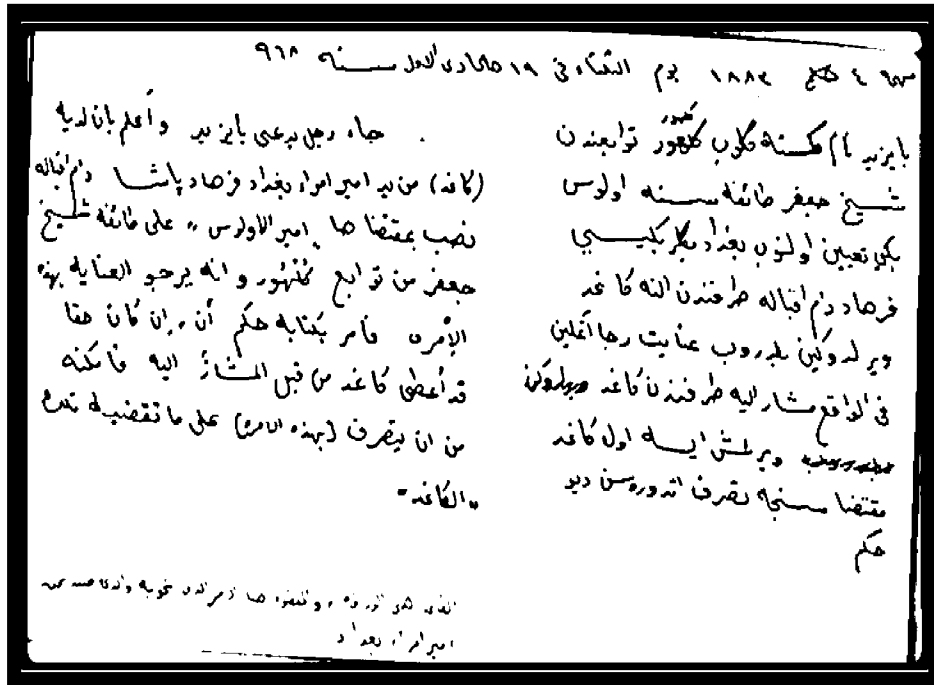 ٤ ١٨٨٣ يوم الثلثاء في ١٩ جمادى الاول سنه ٩٦٨
بايزيد نام كمسنه كلوب كلهور توابعندن
كلهور
شيخ جعفر طائفه سنه اولوس
بكي تعيين اولنوب بغداد بكلر بكيسي
فرهاد دام اقباله طرفندن النه كاغد
ويرلدوكين بلدروب عنايت رجا اتمكين
في الواقع مشار اليه طرفندن كاغد
ويرلمش ايسه اول كاغد
مقتضا سنجه تصرف اتدوره سن ديو
حكم
جاء رجل يدعى بايزيد وأعلم بان لديه
(كاغد) من يد امير امراء بغداد فرهاد پاشا دام اقباله
نصب بمقتضاها "امير الاولوس" على طائفة شيخ
جعفر من توابع كلهور وانه يرجو العنايه بهذه
الأمره فأمر بكتابه حكم أن إن كان حقا
قد أعطى كاغد من قبل المشار اليه فامكنه
من ان يتصرف (بهذه الامرة) على ما تقضيه
"الكاغد"
امير امراء بغداد